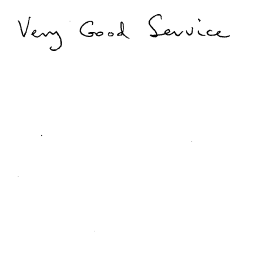 Very Good Service